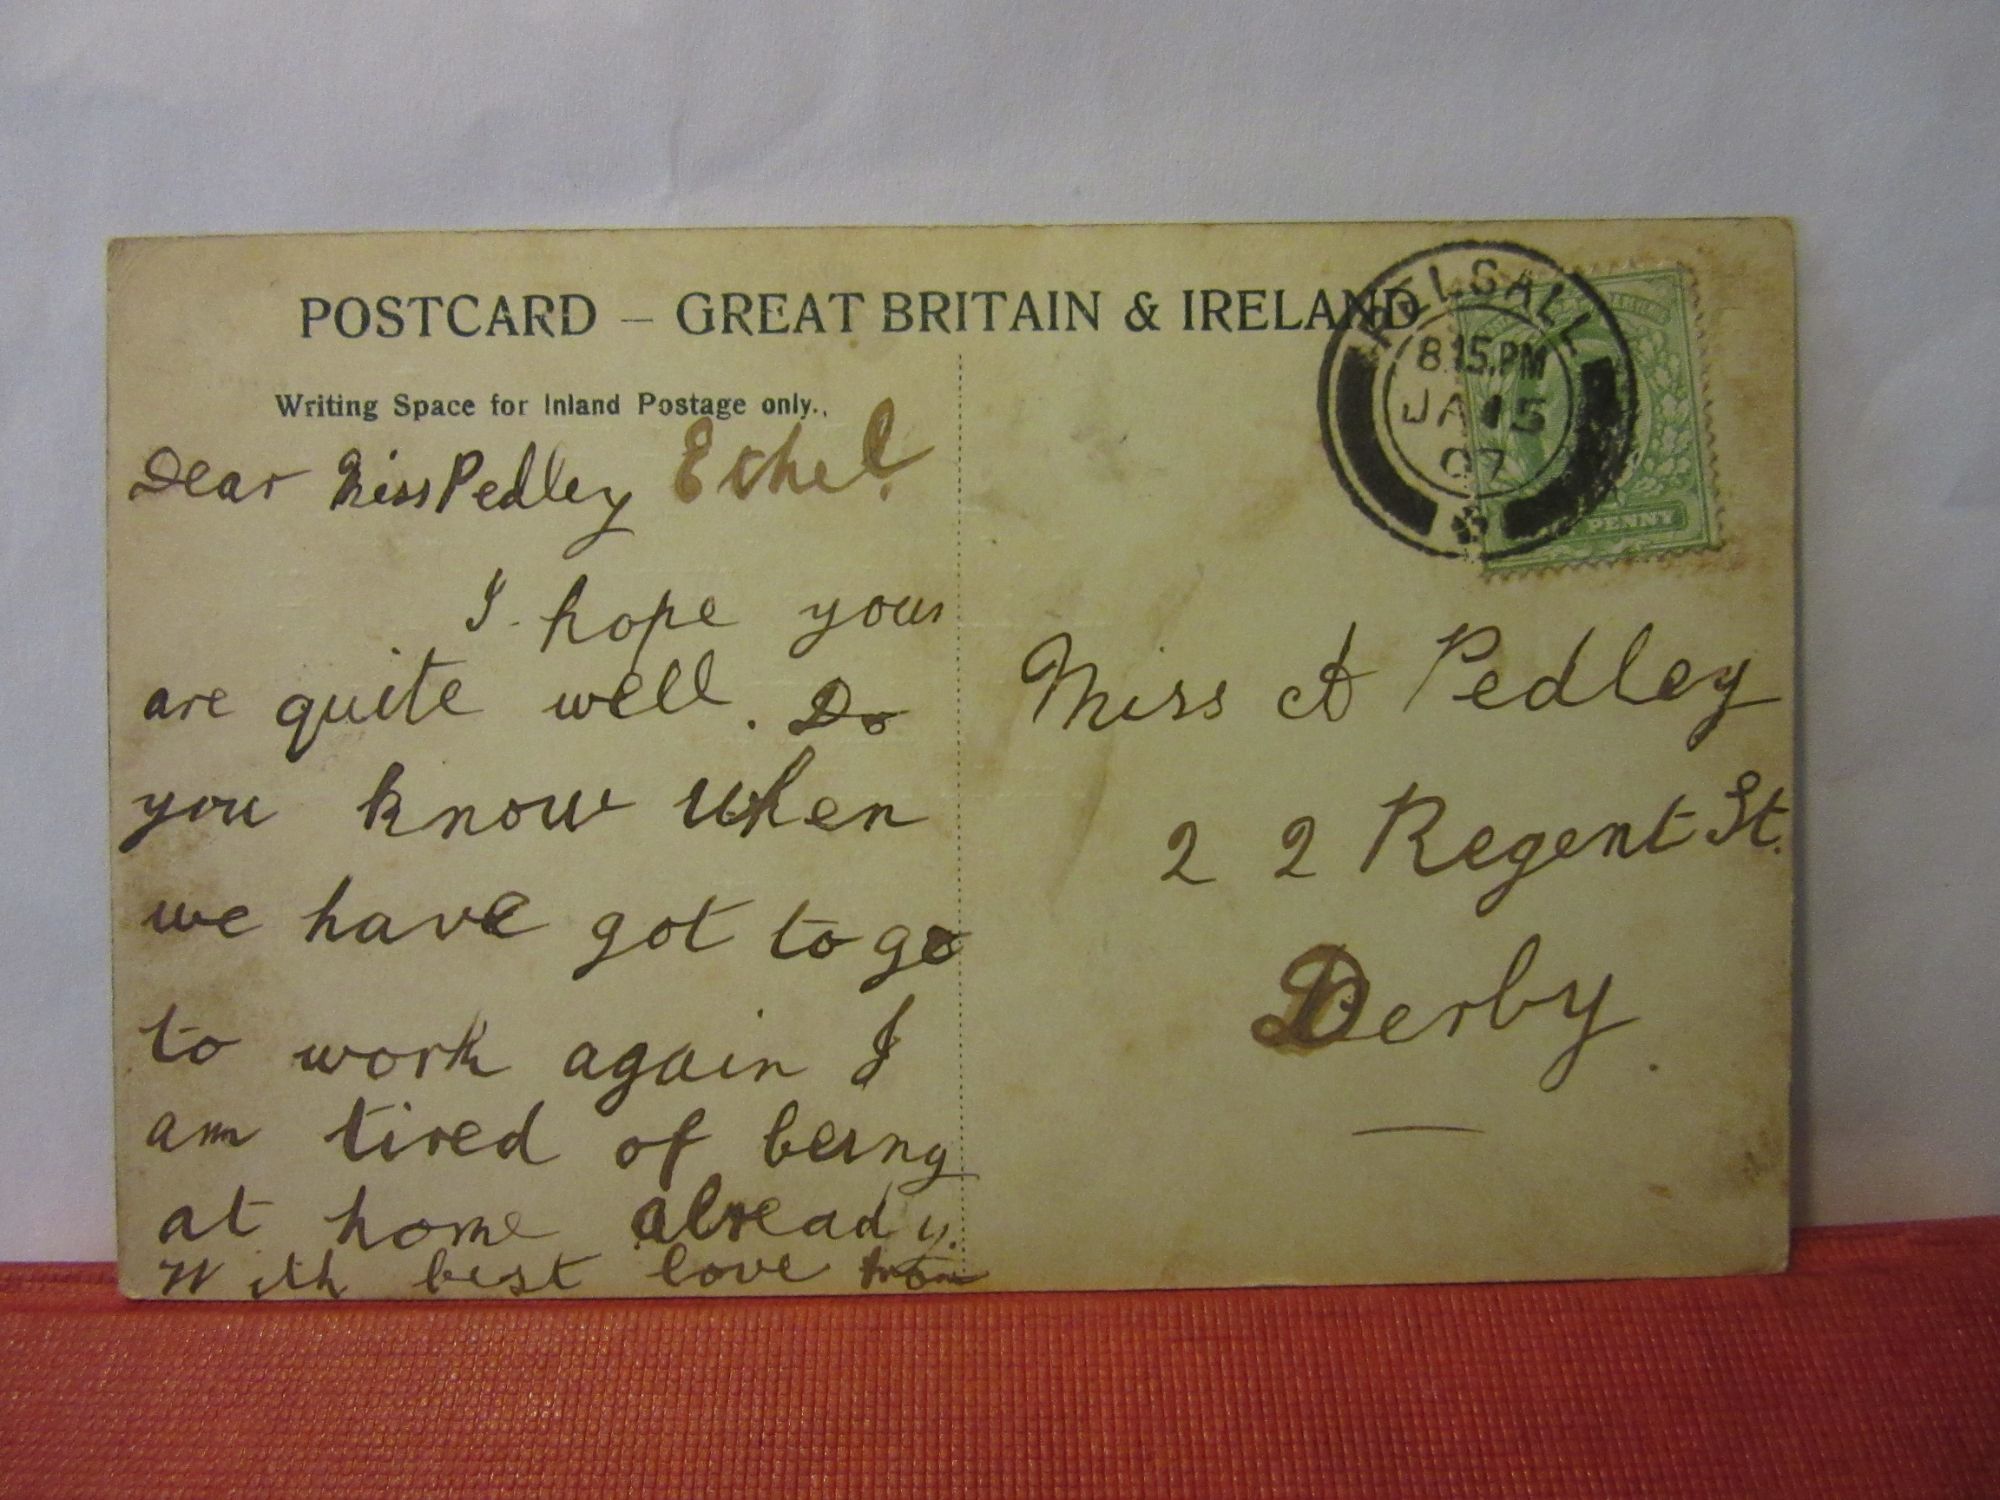 POSTCARD — GREAT BRITAIN & IRELAND
Writing Space for Inland Postage only.
Dear Miss Pedley Ethel.
I hope your
are quite well. Do
you know when
we have got to go
to work again I
am tired of being
at home already.
With best love from
PELSALL
8.15.PM
JA 15
07
PENNY
Miss A Pedley
22 Regent St.
Derby.